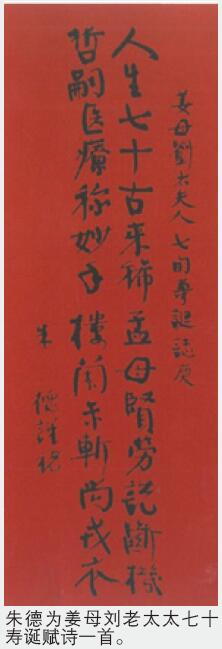 姜母劉太夫人七旬尊誕誌庆
人生七十古来稀孟母賢劳説断機
哲嗣医療称妙手樓蘭未斬尚戎衣
朱德謹祝
朱德为姜母刘老太太七十
寿诞赋诗一首。